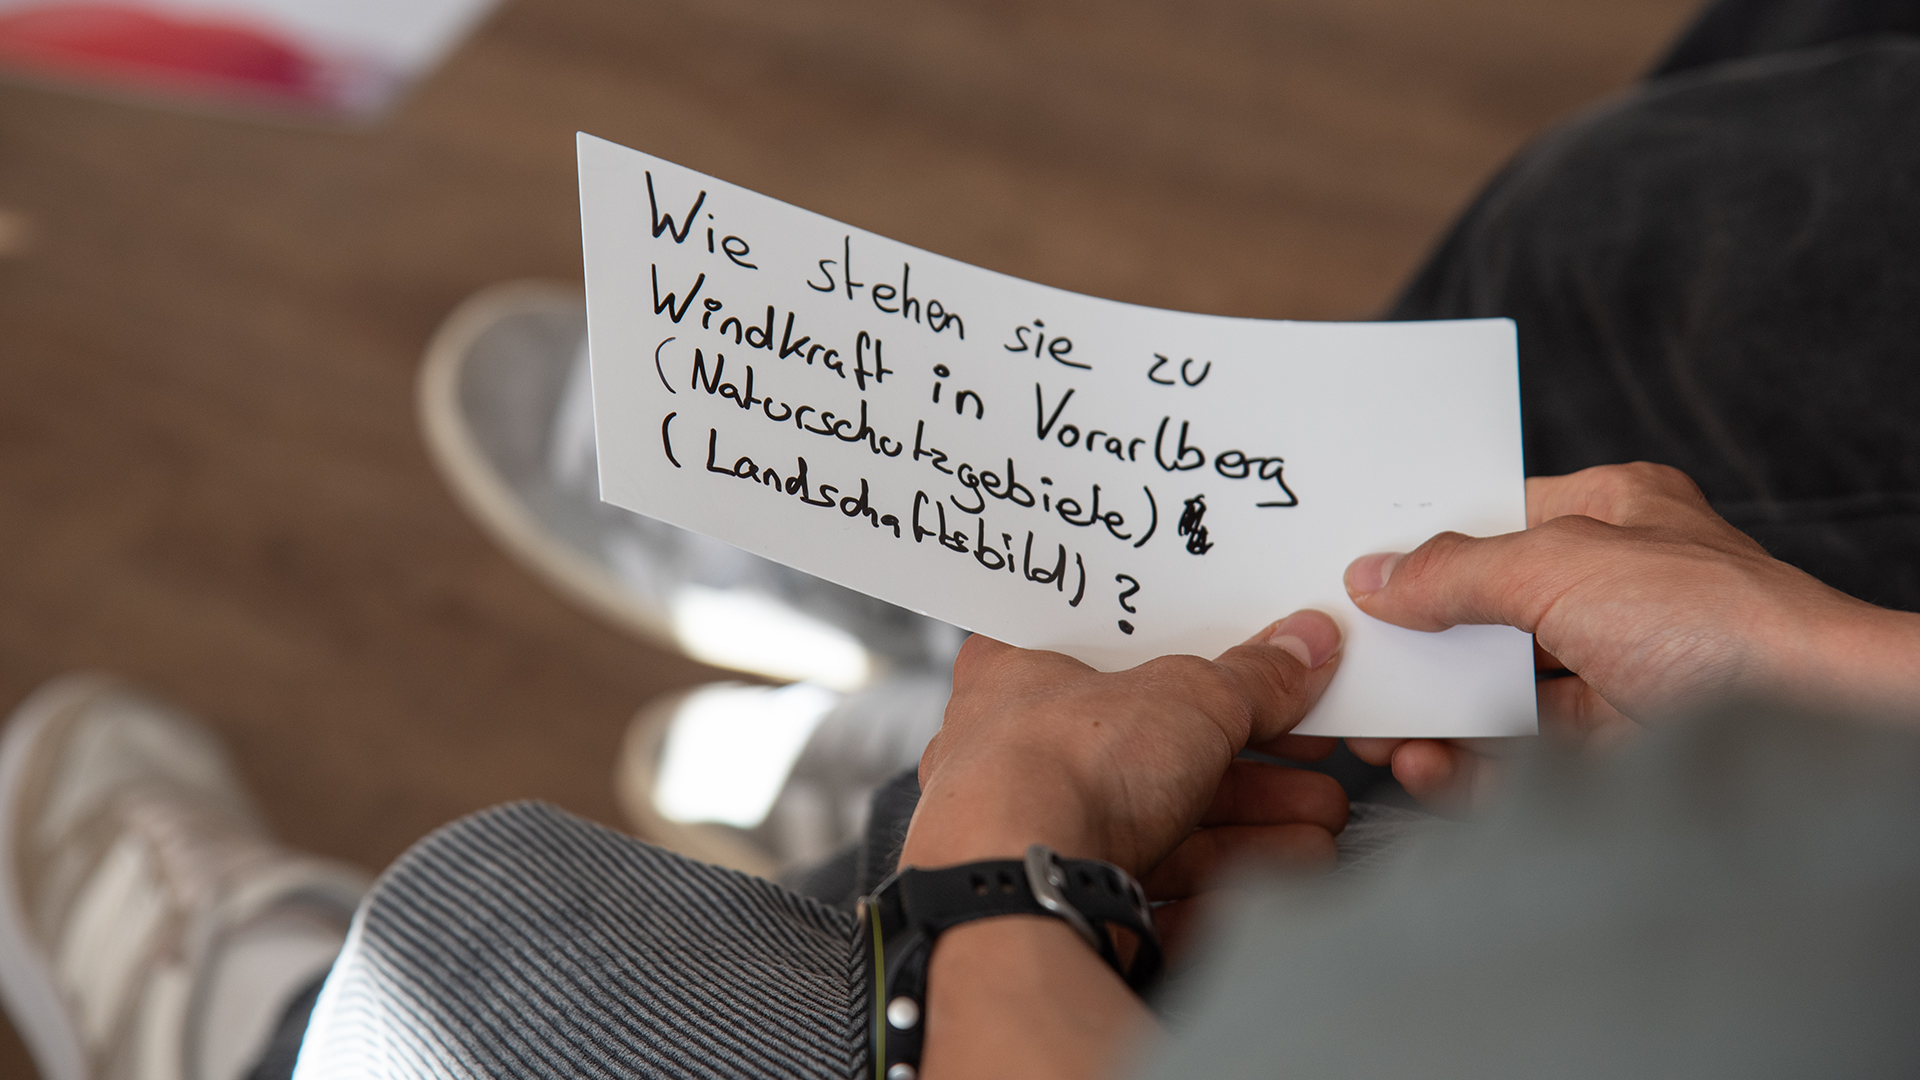 Wie stehen sie zu
Windkraft in Vorarlberg
(Naturschutzgebiete)
(Landschaftsbild)?